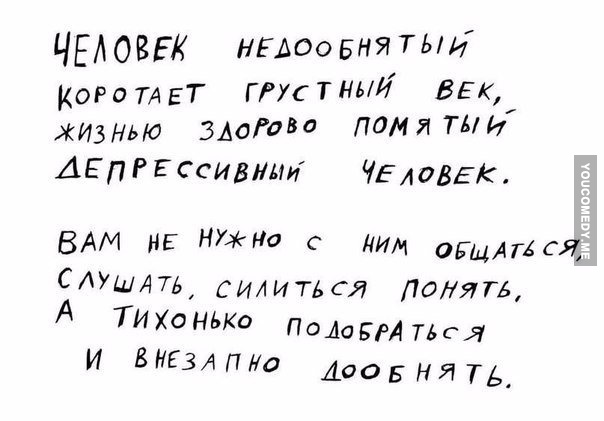 ЧЕЛОВЕК НЕДООБНЯТЫЙ
КОРОТАЕТ ГРУСТНЫЙ ВЕК,
ЖИЗНЬЮ ЗДОРОВО ПОМЯТЫЙ
ДЕПРЕССИВНЫЙ ЧЕЛОВЕК.
ВАМ НЕ НУЖНО С НИМ ОБЩАТЬСЯ,
СЛУШАТЬ, СИЛИТЬСЯ ПОНЯТЬ,
А ТИХОНЬКО ПОДОБРАТЬСЯ
И ВНЕЗАПНО ДООБНЯТЬ.
YOUCOMEDY.ME